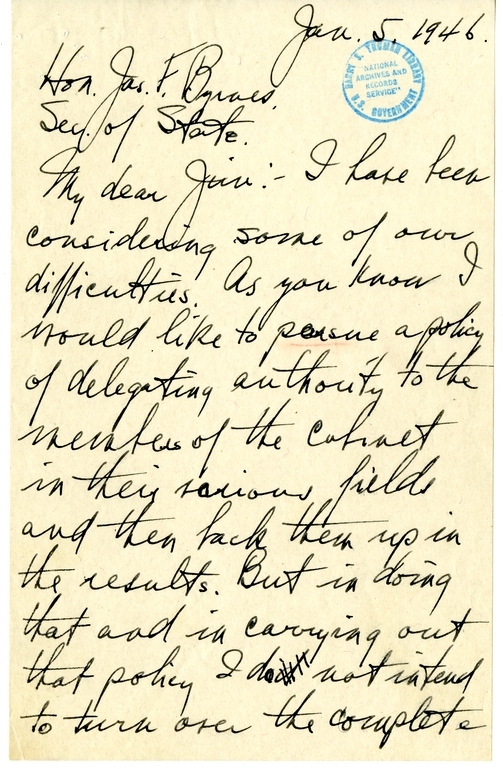 Jan. 5, 1946.
HARRY S. TRUMAN LIBRARY
"NATIONAL
ARCHIVES AND
RECORDS
SERVICE"
U.S. GOVERNMENT
Hon. Jas. F. Byrnes,
Sec. of State.
My dear Jim:- I have been
considering some of our
difficulties. As you know I
would like to persue a policy
of delegating authority to the
members of the cabinet
in their various fields
and then back them up in
the results. But in doing
that and in carrying out
that policy I do not intend
to turn over the complete